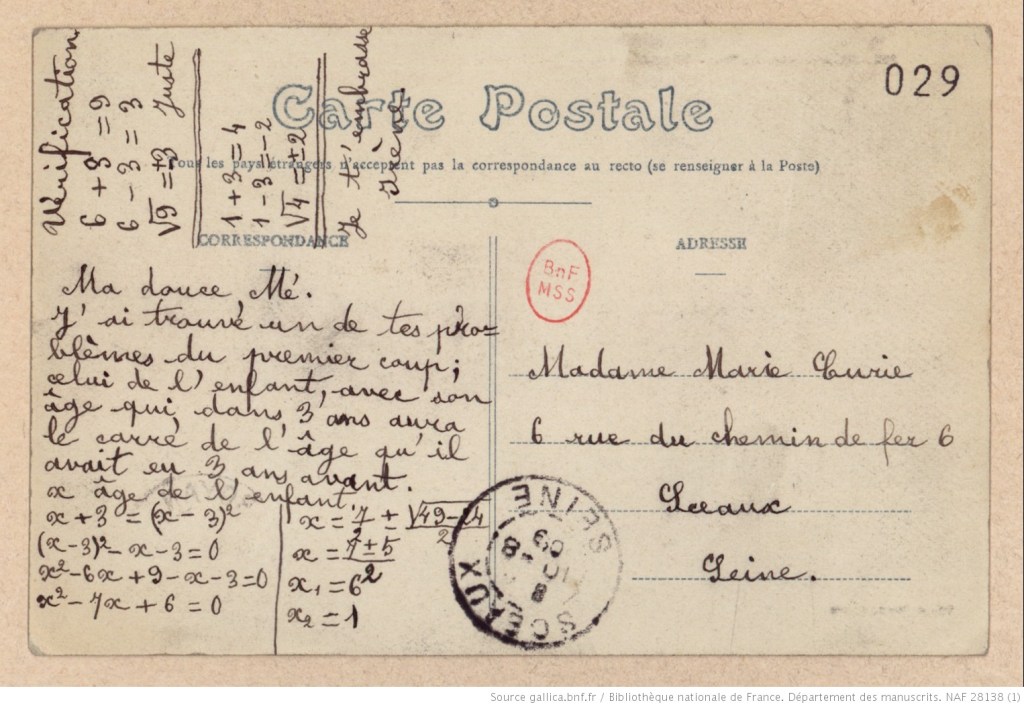 029
Carte Postale
Tous les pays étrangers n'acceptent pas la correspondance au recto (se renseigner à la Poste)
CORRESPONDANCE
ADRESSE
BnF
MSS
Ma douce Mé.
J'ai trouvé un de tes pro=
blèmes du premier coup;
celui de l'enfant, avec son
âge qui, dans 3 ans aura
le carré de l'âge qu'il
avait eu 3 ans avant.
x âge de l'enfant.
x + 3 = (x - 3)²
(x-3)² - x - 3 = 0
x² - 6x + 9 - x - 3 = 0
x² - 7x + 6 = 0
x = 7 ± √49-24
2
x = 7 ± 5
2
x₁ = 6
x₂ = 1
Vérification
6 + 3 = 9
6 - 3 = 3
√9 = ±3 juste
1 + 3 = 4
1 - 3 = -2
√4 = ±2
Je t'embrasse
Irène.
Madame Marie Curie
6 rue du chemin de fer 6
Sceaux
Seine.
SCEAUX
SEINE
Source gallica.bnf.fr / Bibliothèque nationale de France. Département des manuscrits. NAF 28138 (1)